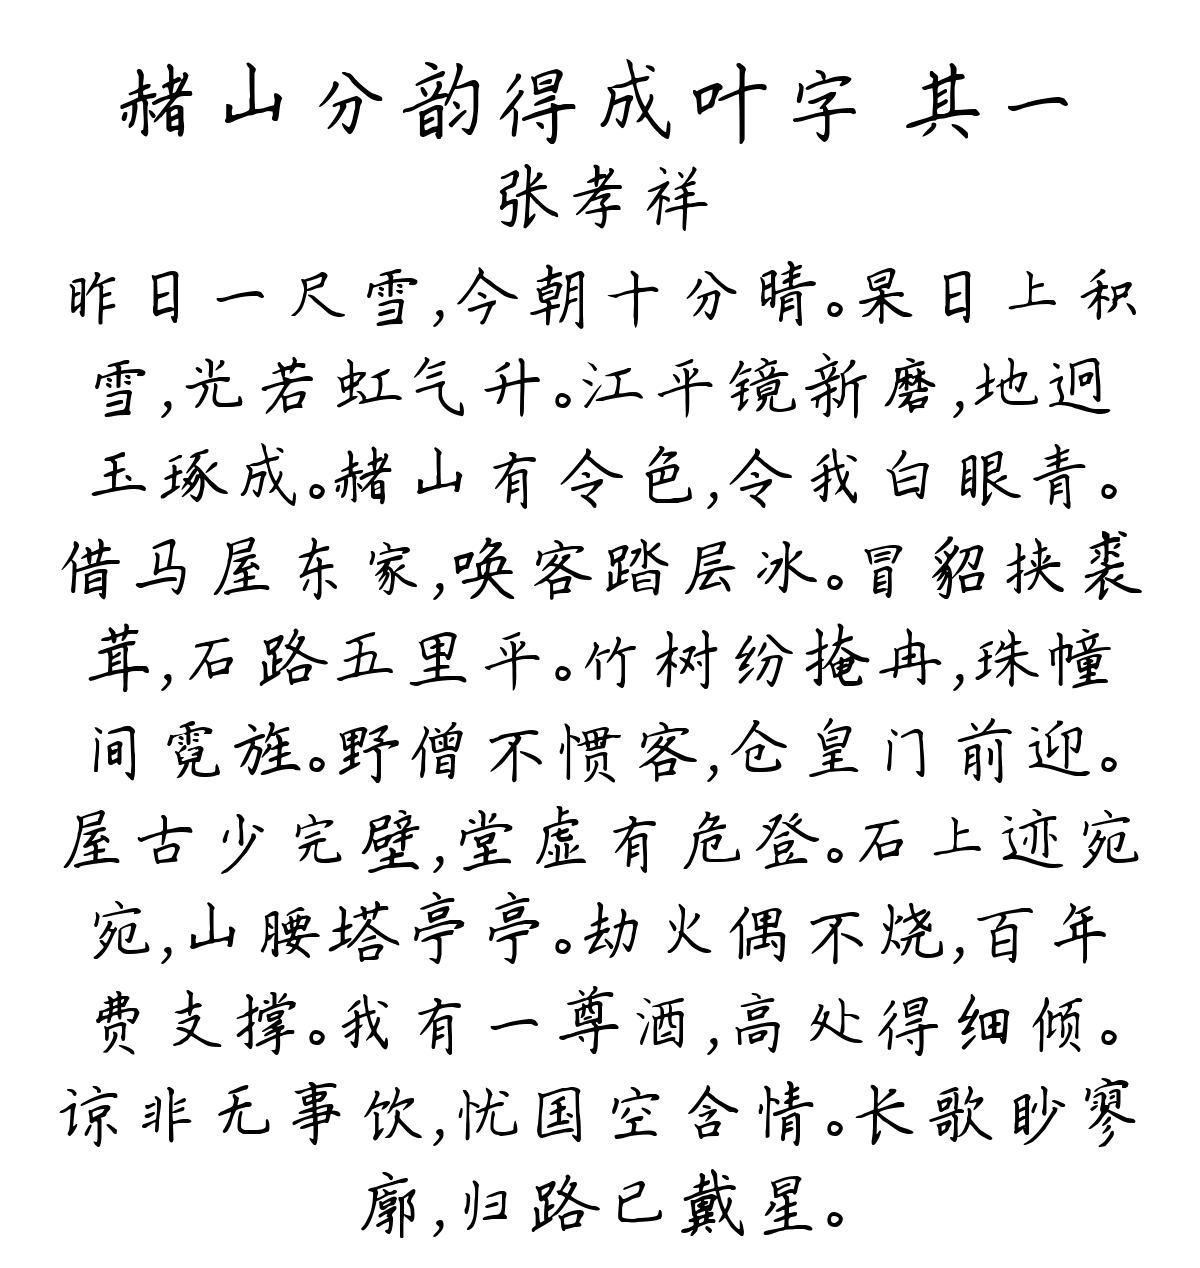 赭山分韵得成叶字 其一
张孝祥
昨日一尺雪,今朝十分晴。杲日上积
雪,光若虹气升。江平镜新磨,地迥
玉琢成。赭山有令色,令我白眼青。
借马屋东家,唤客踏层冰。冒貂挟裘
茸,石路五里平。竹树纷掩冉,珠幢
间霓旌。野僧不惯客,仓皇门前迎。
屋古少完壁,堂虚有危登。石上迹宛
宛,山腰塔亭亭。劫火偶不烧,百年
费支撑。我有一尊酒,高处得细倾。
谅非无事饮,忧国空含情。长歌眇寥
廓,归路已戴星。